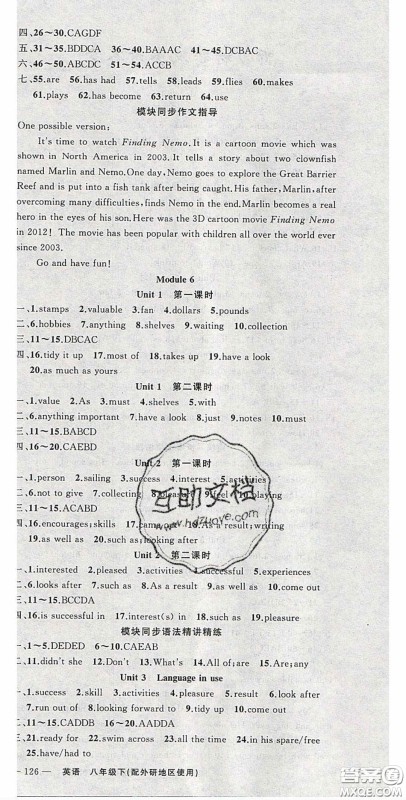 四、26～30.CAGDF
五、31～35.BDDCA 36～40.BAAAC 41～45.DCBAC
六、46～50.ABCDC 51～55.CACBB
七、55.are 56.has had 57.details 58.leads 59.flies 60.makes
61.plays 62.has become 63.return 64.use
模块同步作文指导
One possible version:
It's time to watch Finding Nemo. It is a cartoon movie which was
shown in North America in 2003. It tells a story about two clownfish
named Marlin and Nemo. One day, Nemo goes to explore the Great Barrier
Reef and is put into a fish tank after being caught. His father, Marlin, after
overcoming many difficulties, finds Nemo in the end. Marlin becomes a real
hero in the eyes of his son. Here was the 3D cartoon movie Finding Nemo
in 2012! The movie has been popular with children all over the world ever
since 2003.
Go and have fun!
Module 6
Unit 1 第一课时
一、1.stamps 2.valuable 3.fan 4.dollars 5.pounds
二、6.hobbies 7.anything 8.shelves 9.waiting 10.collection
三、11～15.DBCAC
四、16.tidy it up 17.most of 18.takes up 19.have a look
20.as much of yours
Unit 1 第二课时
一、1.value 2.As 3.must 4.shelves 5.with
二、6.anything important 7.have a look 8.just 9.notes 10.must
三、11～15.BABCD
四、16～20.CAEBD
Unit 2 第一课时
一、1.person 2.sailing 3.success 4.interest 5.activities
二、6.not to give 7.collecting 8.pleased 9.feel 10.playing
三、11～15.ACABD
四、16.encourages; skills 17.came out 18.As a result; writing
19.as well as 20.such as; looking after
Unit 2 第二课时
一、1.interested 2.pleased 3.activities 4.successful 5.experiences
二、6.looks after 7.such as 8.As a result 9.as well as 10.come out
三、11～15.BCCDA
四、16.is successful in 17.interest(s) in 18.such as 19.pleasure
模块同步语法精讲精练
一、1～5.DEDED 6～10.CAEAB
二、11.didn't she 12.Don't 13.What's 14.All of 15.Are; any
Unit 3 Language in use
一、1.success 2.skill 3.activities 4.pleasure 5.result
二、6.look after 7.run out of 8.looking for 9.come out 10.tidy up
三、11～15.CDABB 16～20.DCCDC
四、21.ready for 22.swim in 23.as a result 24.in his spare/free
25.have added to
— 126 — 英语 八年级下(配外研地区使用)
互助文档
www.hdzuoye.com
答案圈
MXQE.COM